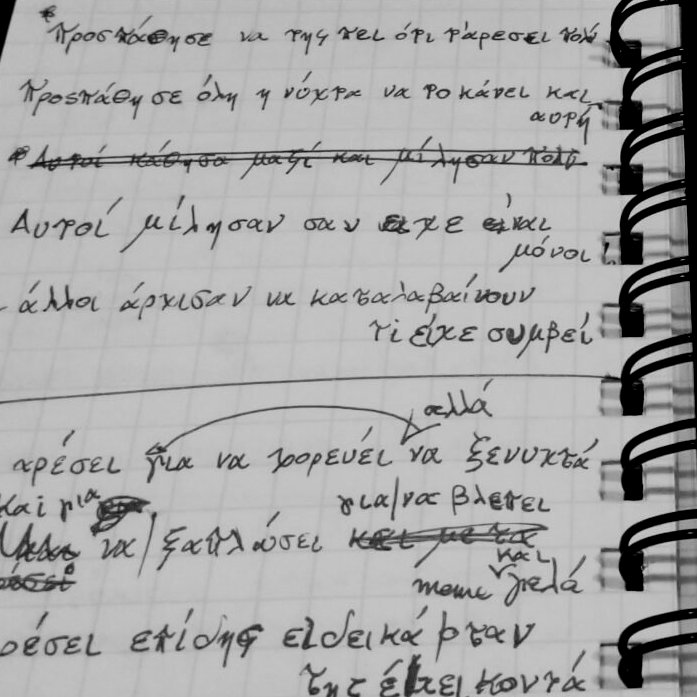 Προσπάθησε να της πει ότι τ'αρεσει πολύ
Προσπάθησε όλη η νύχτα να το κάνει και
αυτή
Αυτοί κάθησα μαζί και μίλησαν πολύ
Αυτοί μίλησαν σαν να είναι
μόνοι!
άλλοι άρχισαν να καταλαβαίνουν
τί είχε συμβεί
αλλά
αρέσει για να χορευέι να ξενυχτά
και για για/να βλεπει
να/ξαπλώσει και μετα
και
meme γελά
ρέσει επίσης ειδεικά όταν
της έχει κοντά